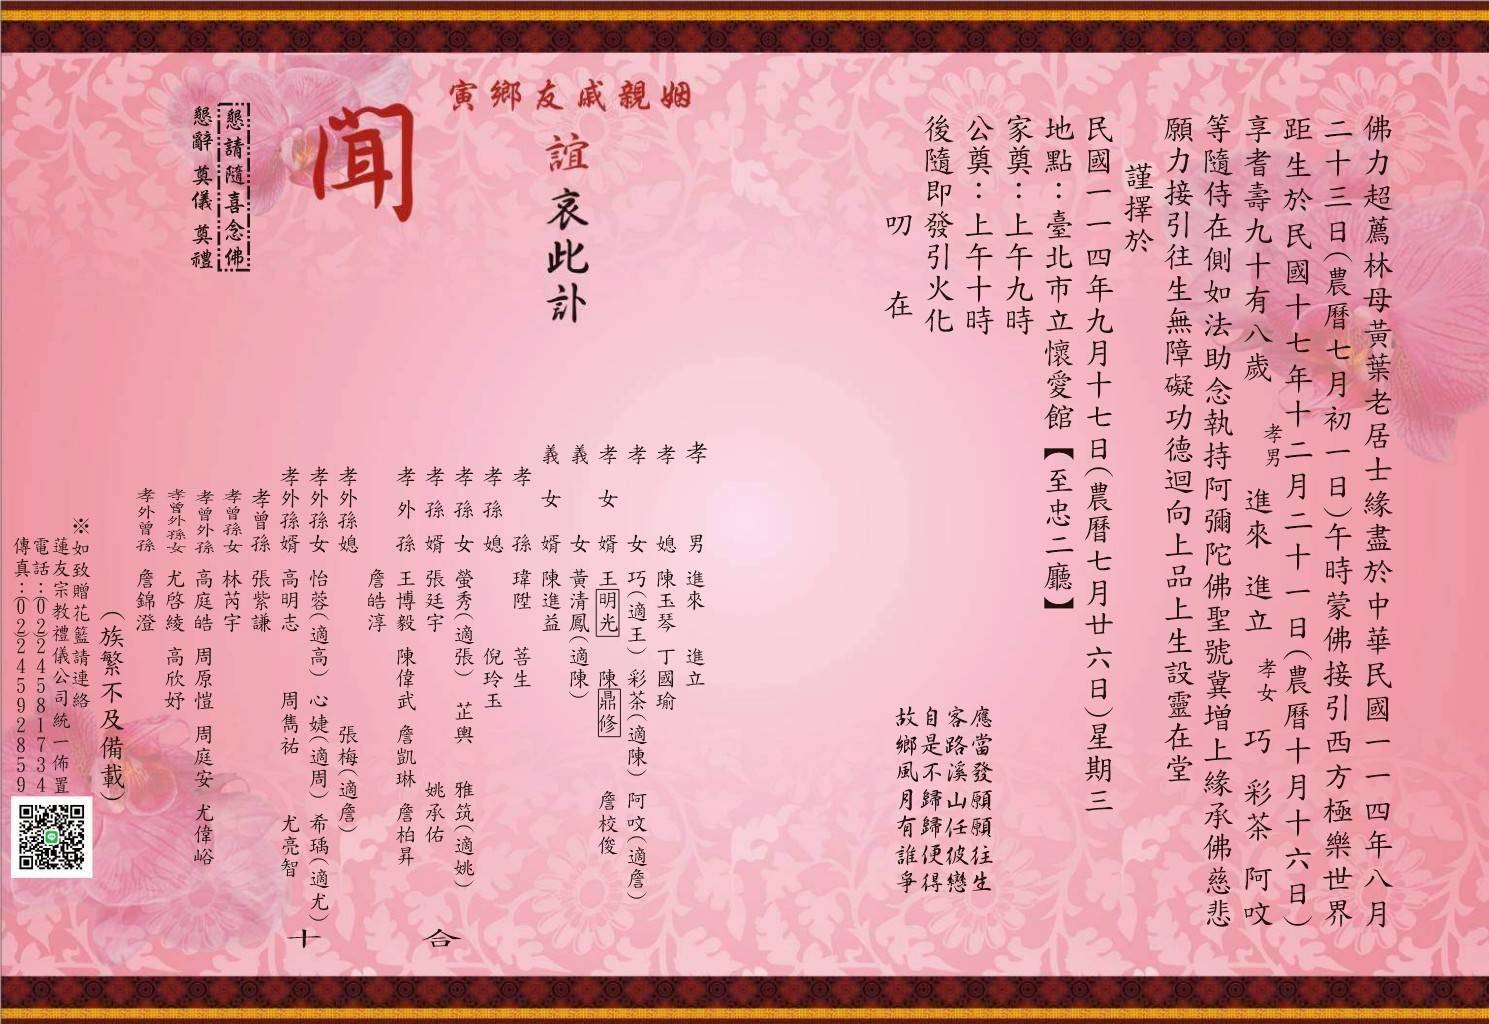 佛力超薦林母黃葉老居士緣盡於中華民國一一四年八月
二十三日(農曆七月初一日)午時蒙佛接引西方極樂世界
距生於民國十七年十二月二十一日(農曆十月十六日)
享耆壽九十有八歲 孝男 進來 進立 孝女 巧 彩茶 阿呅
等隨侍在側如法助念執持阿彌陀佛聖號冀增上緣承佛慈悲
願力接引往生無障礙功德迴向上品上生設靈在堂
謹擇於
民國一一四年九月十七日(農曆七月廿六日)星期三
地點:臺北市立懷愛館【至忠二廳】
家奠:上午九時
公奠:上午十時
後隨即發引火化
叨 在
應當發願願往生
客路溪山任彼戀
自是不歸歸便得
故鄉風月有誰爭
姻親戚友鄉寅
誼哀此訃
聞
孝男 進來 進立
孝媳 陳玉琴 丁國瑜
孝女 巧(適王) 彩茶(適陳) 阿呅(適詹)
孝女婿 王明光 陳鼎修 詹校俊
義女 黃清鳳(適陳)
義女婿 陳進益
孝孫 瑋陞 菩生
孝孫媳 倪玲玉
孝孫女 螢秀(適張) 芷輿 雅筑(適姚)
孝孫婿 張廷宇 姚承佑
孝外孫 王博毅 陳偉武 詹凱琳 詹柏昇
詹皓淳
孝外孫媳 張梅(適詹)
孝外孫女 怡蓉(適高) 心婕(適周) 希瑀(適尤)
孝外孫婿 高明志 周雋祐 尤亮智
孝曾孫 張紫謙
孝曾孫女 林芮宇
孝曾外孫 高庭皓 周原愷 周庭安 尤偉峪
孝曾外孫女 尤啓綾 高欣妤
孝外曾孫 詹錦澄
合十
(族繁不及備載)
懇請隨喜念佛
懇辭 奠儀 奠禮
※如致贈花籃請連絡
蓮友宗教禮儀公司統一佈置
電話:(02)24581734
傳真:(02)24592859